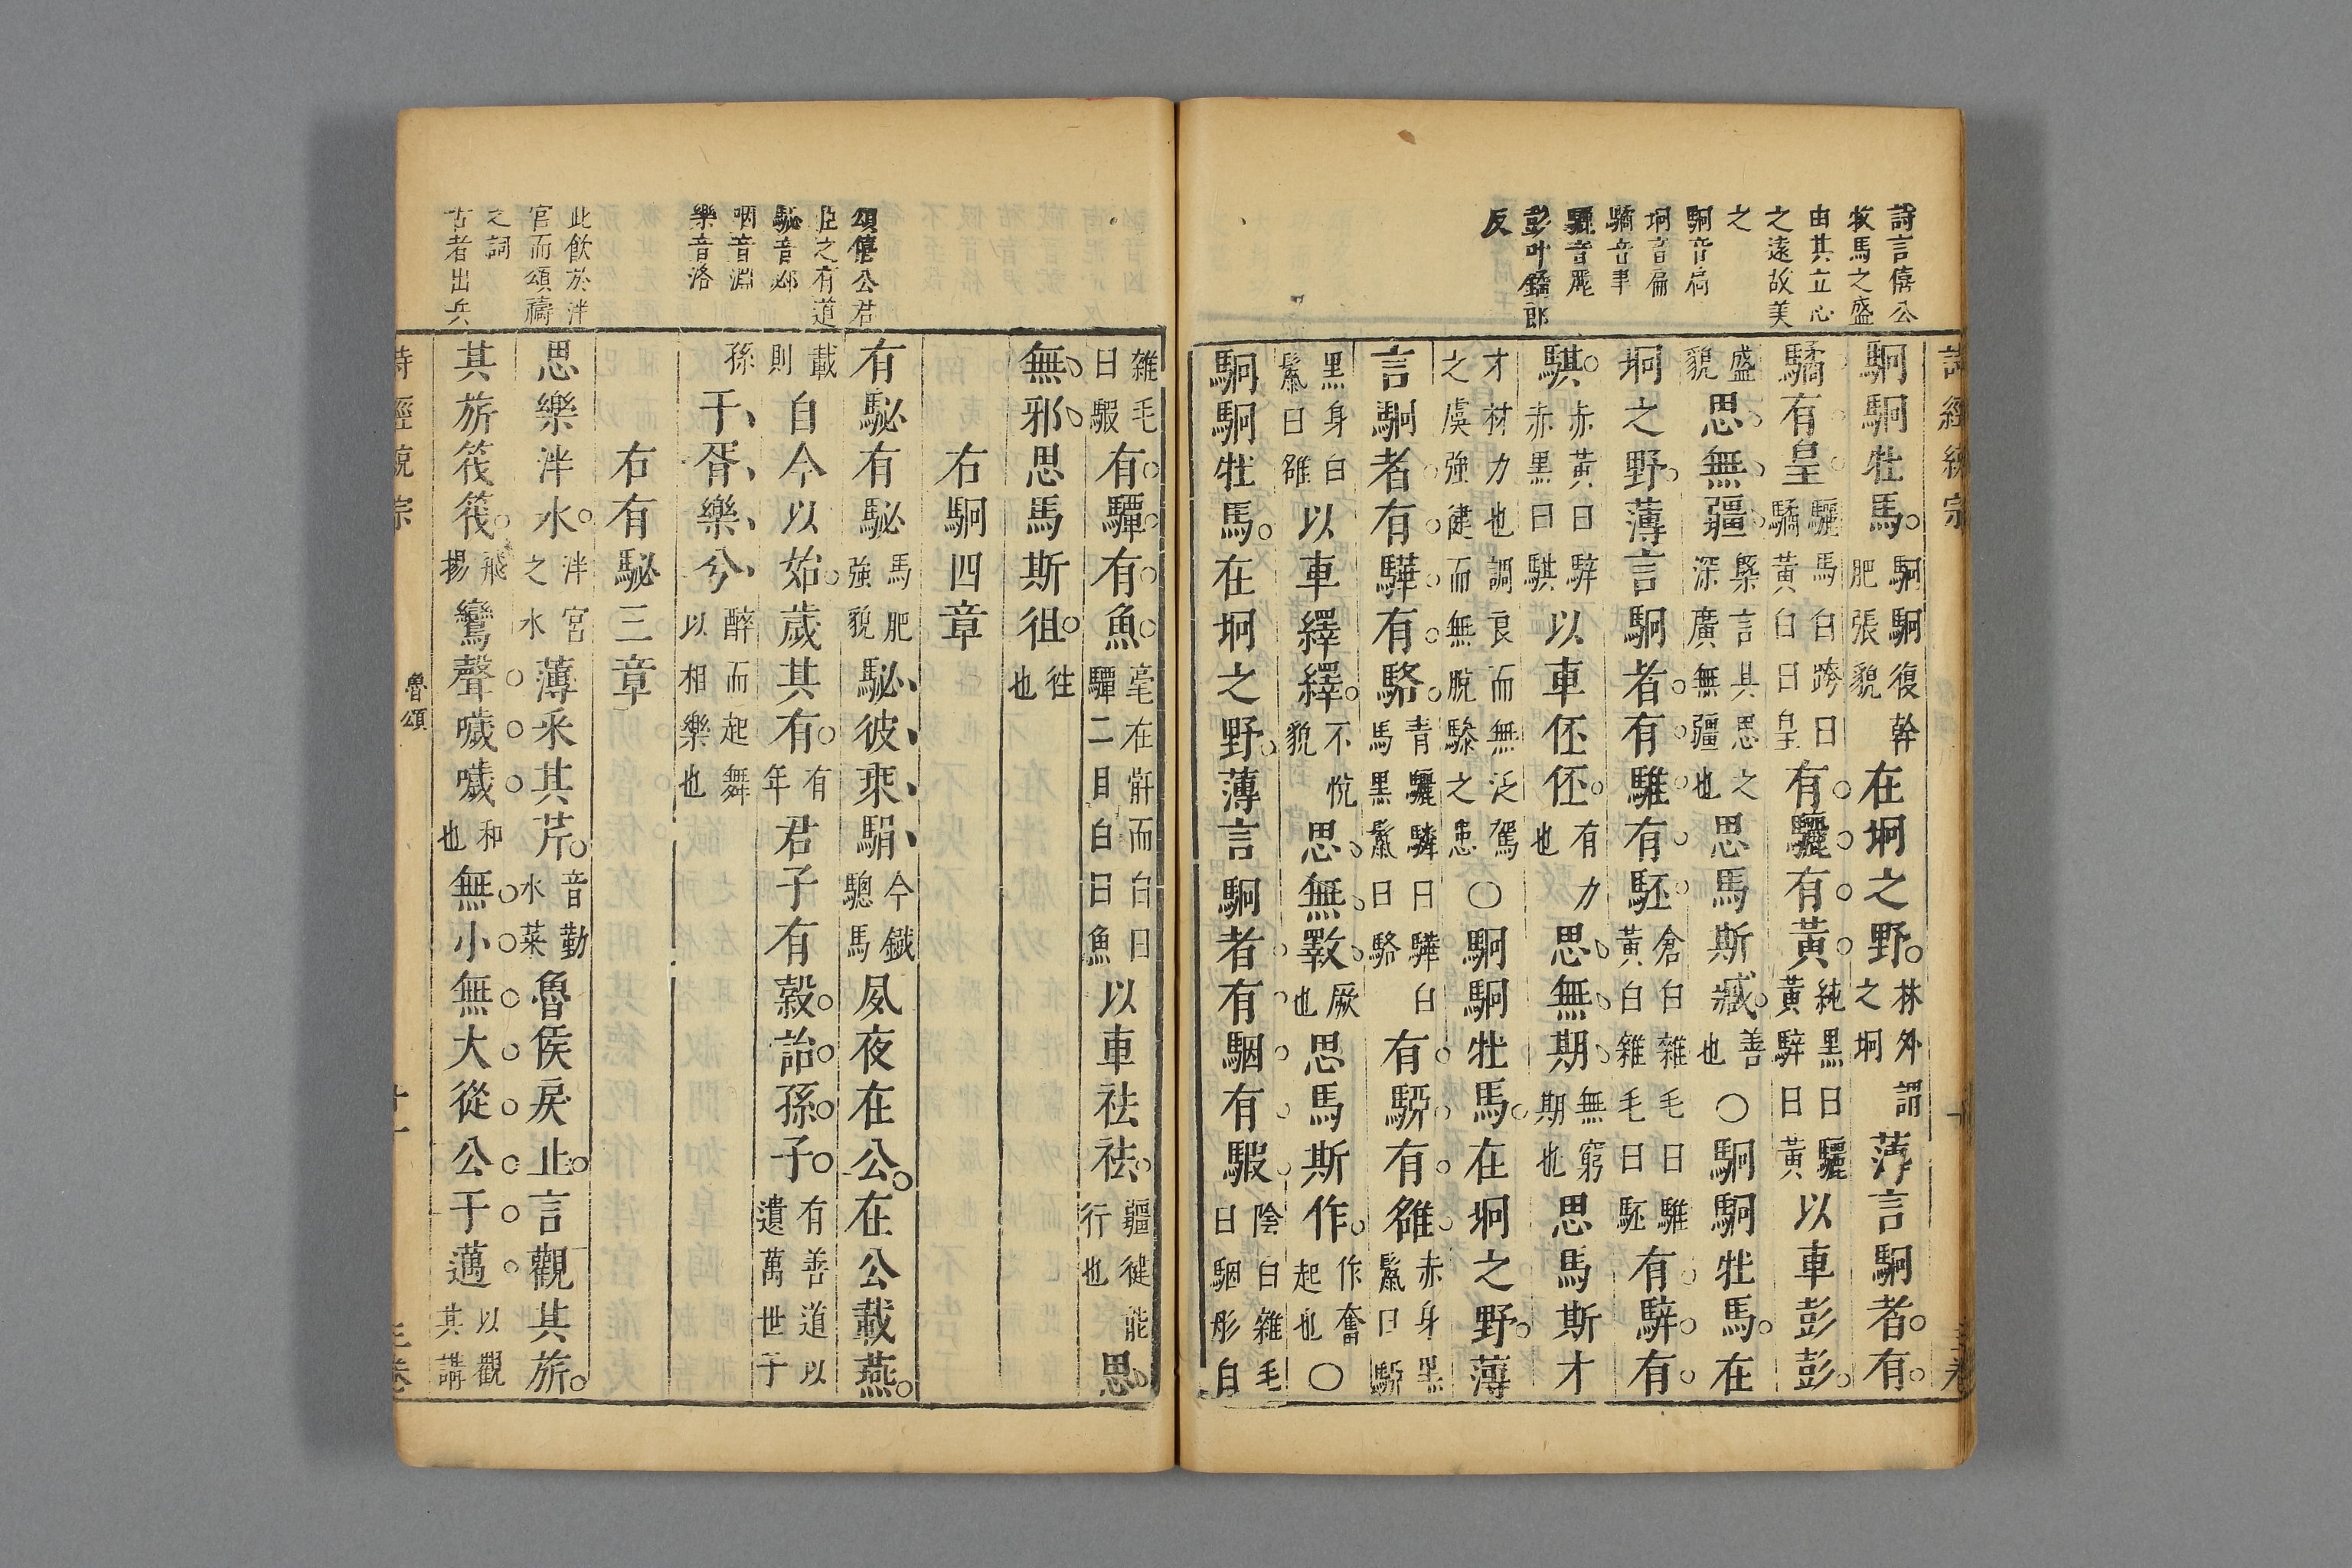 詩言僖公
牧馬之盛
由其立心
之遠故美
之
駉音扃
坰音扃
驕音聿
驪音麗
彭叶鋪郎
反
駉駉牡馬駉駉復幹肥張貌在坰之野林外謂之坰薄言駉者有
驕有皇驪馬白跨曰驕黃白曰皇有驪有黃純黑曰驪黃騂曰黃以車彭彭
盛貌思無疆槩言其思之深廣無疆也思馬斯臧善也○駉駉牡馬在
坰之野薄言駉者有騅有駓倉白雜毛曰騅黃白雜毛曰駓有騂有
騏赤黃曰騂赤黑曰騏以車伾伾有力也思無期無窮期也思馬斯才
才材力也調良而無泛駕之虞強健而無脫驂之患○駉駉牡馬在坰之野薄
言駉者有驊有駱青驪驎曰驊白馬黑鬣曰駱有駵有雒赤身黑鬣曰駵
黑身白鬣曰雒以車繹繹不悅貌思無斁厭也思馬斯作作奮起也○
駉駉牡馬在坰之野薄言駉者有駰有騢陰白雜毛曰駰彤白
頌僖公君
臣之有道
駜音邲
咽音淵
樂音洛
此飲於泮
宮而頌禱
之詞
古者出兵
雜毛曰騢有驔有魚毫在骭而白曰驔二目白曰魚以車祛祛疆健能行也思
無邪思馬斯徂徃也
右駉四章
有駜有駜馬肥強貌駜彼乘駽今鐵驄馬夙夜在公在公載燕
載則自今以始歲其有有年君子有穀詒孫子有善道以遺萬世于
孫于胥樂兮醉而起舞以相樂也
右有駜三章
思樂泮水泮宮之水薄采其芹音勤水菜魯侯戾止言觀其旂
其旂筏筏飛揚鸞聲噦噦和也無小無大從公于邁以觀其講
魯頌